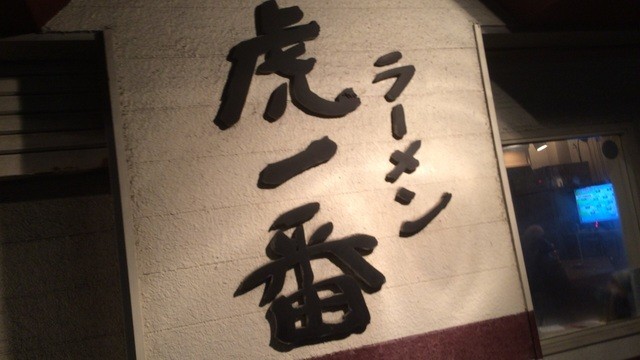 ラーメン
虎一番